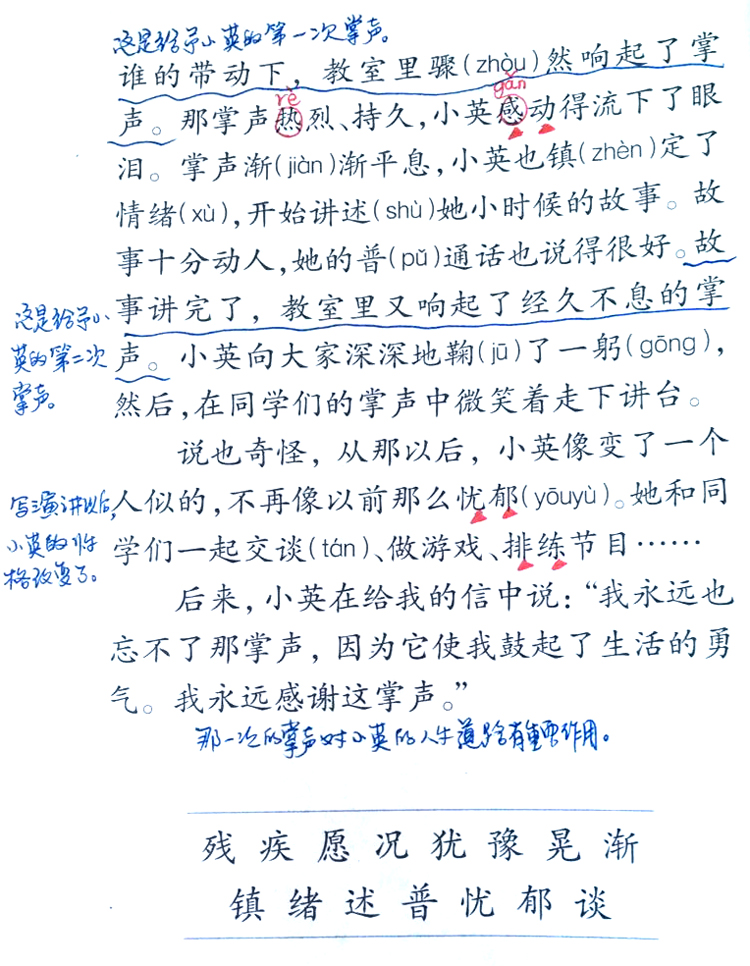 这是给予小英的第一次掌声。
谁的带动下，教室里骤(zhòu)然响起了掌
rè
gǎn
声。那掌声热烈、持久，小英感动得流下了眼
泪。掌声渐(jiàn)渐平息，小英也镇(zhèn)定了
情绪(xù)，开始讲述(shù)她小时候的故事。故
事十分动人，她的普(pǔ)通话也说得很好。故
事讲完了，教室里又响起了经久不息的掌
这是给予小
英的第二次
掌声。
声。小英向大家深深地鞠(jū)了一躬(gōng)，
然后，在同学们的掌声中微笑着走下讲台。
说也奇怪，从那以后，小英像变了一个
人似的，不再像以前那么忧郁(yōuyù)。她和同
写演讲以后，
小英的性
格改变了。
学们一起交谈(tán)、做游戏、排练节目……
后来，小英在给我的信中说：“我永远也
忘不了那掌声，因为它使我鼓起了生活的勇
气。我永远感谢这掌声。”
那一次的掌声对小英的人生道路有重要作用。
残疾愿况犹豫晃渐
镇绪述普忧郁谈